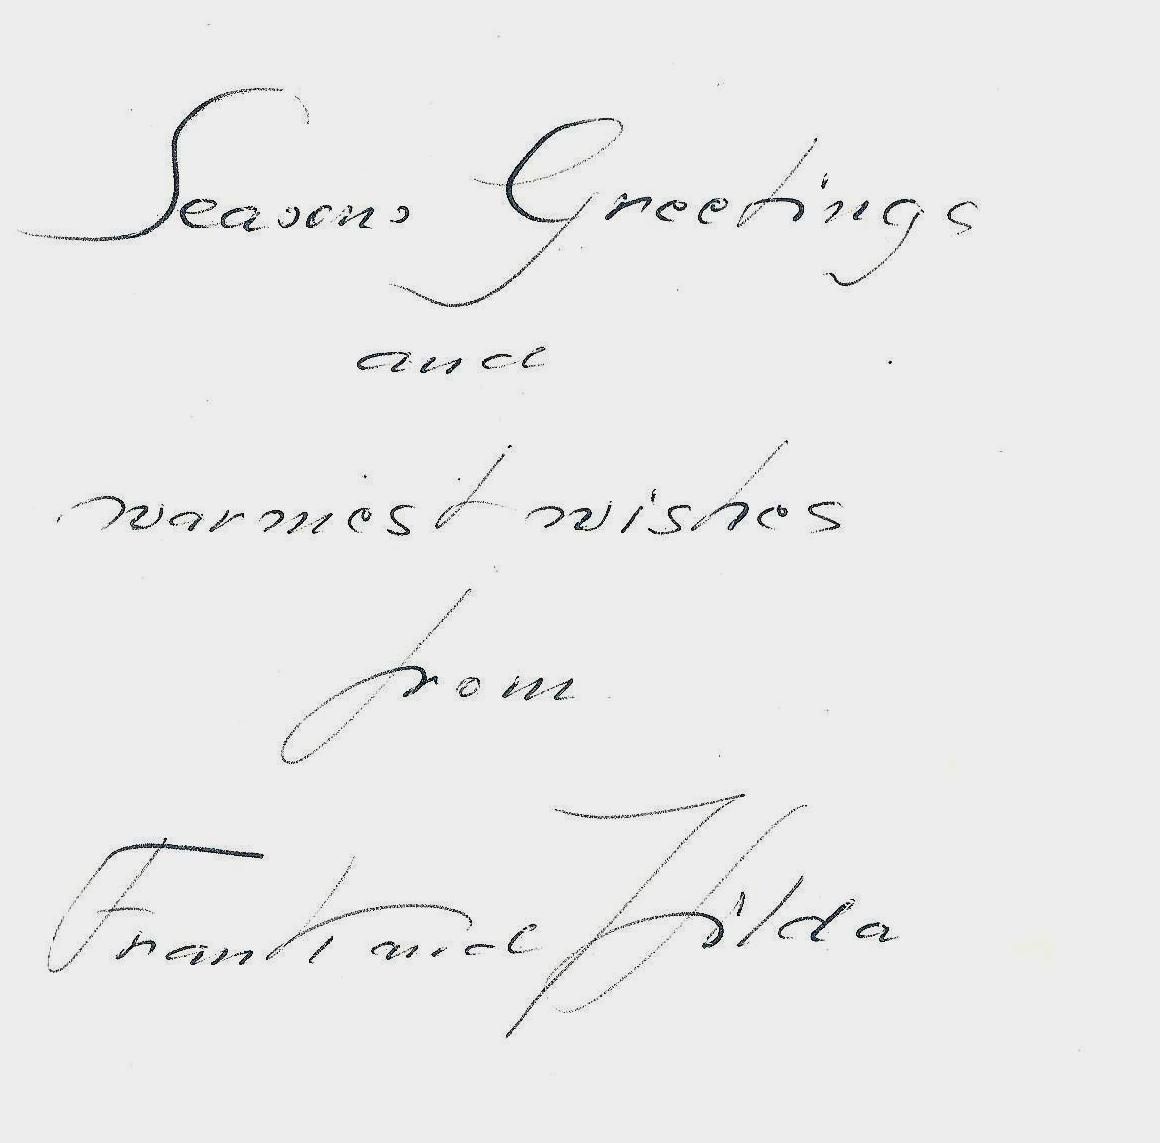 Seasons Greetings
and
warmest wishes
from
Frank and Hilda